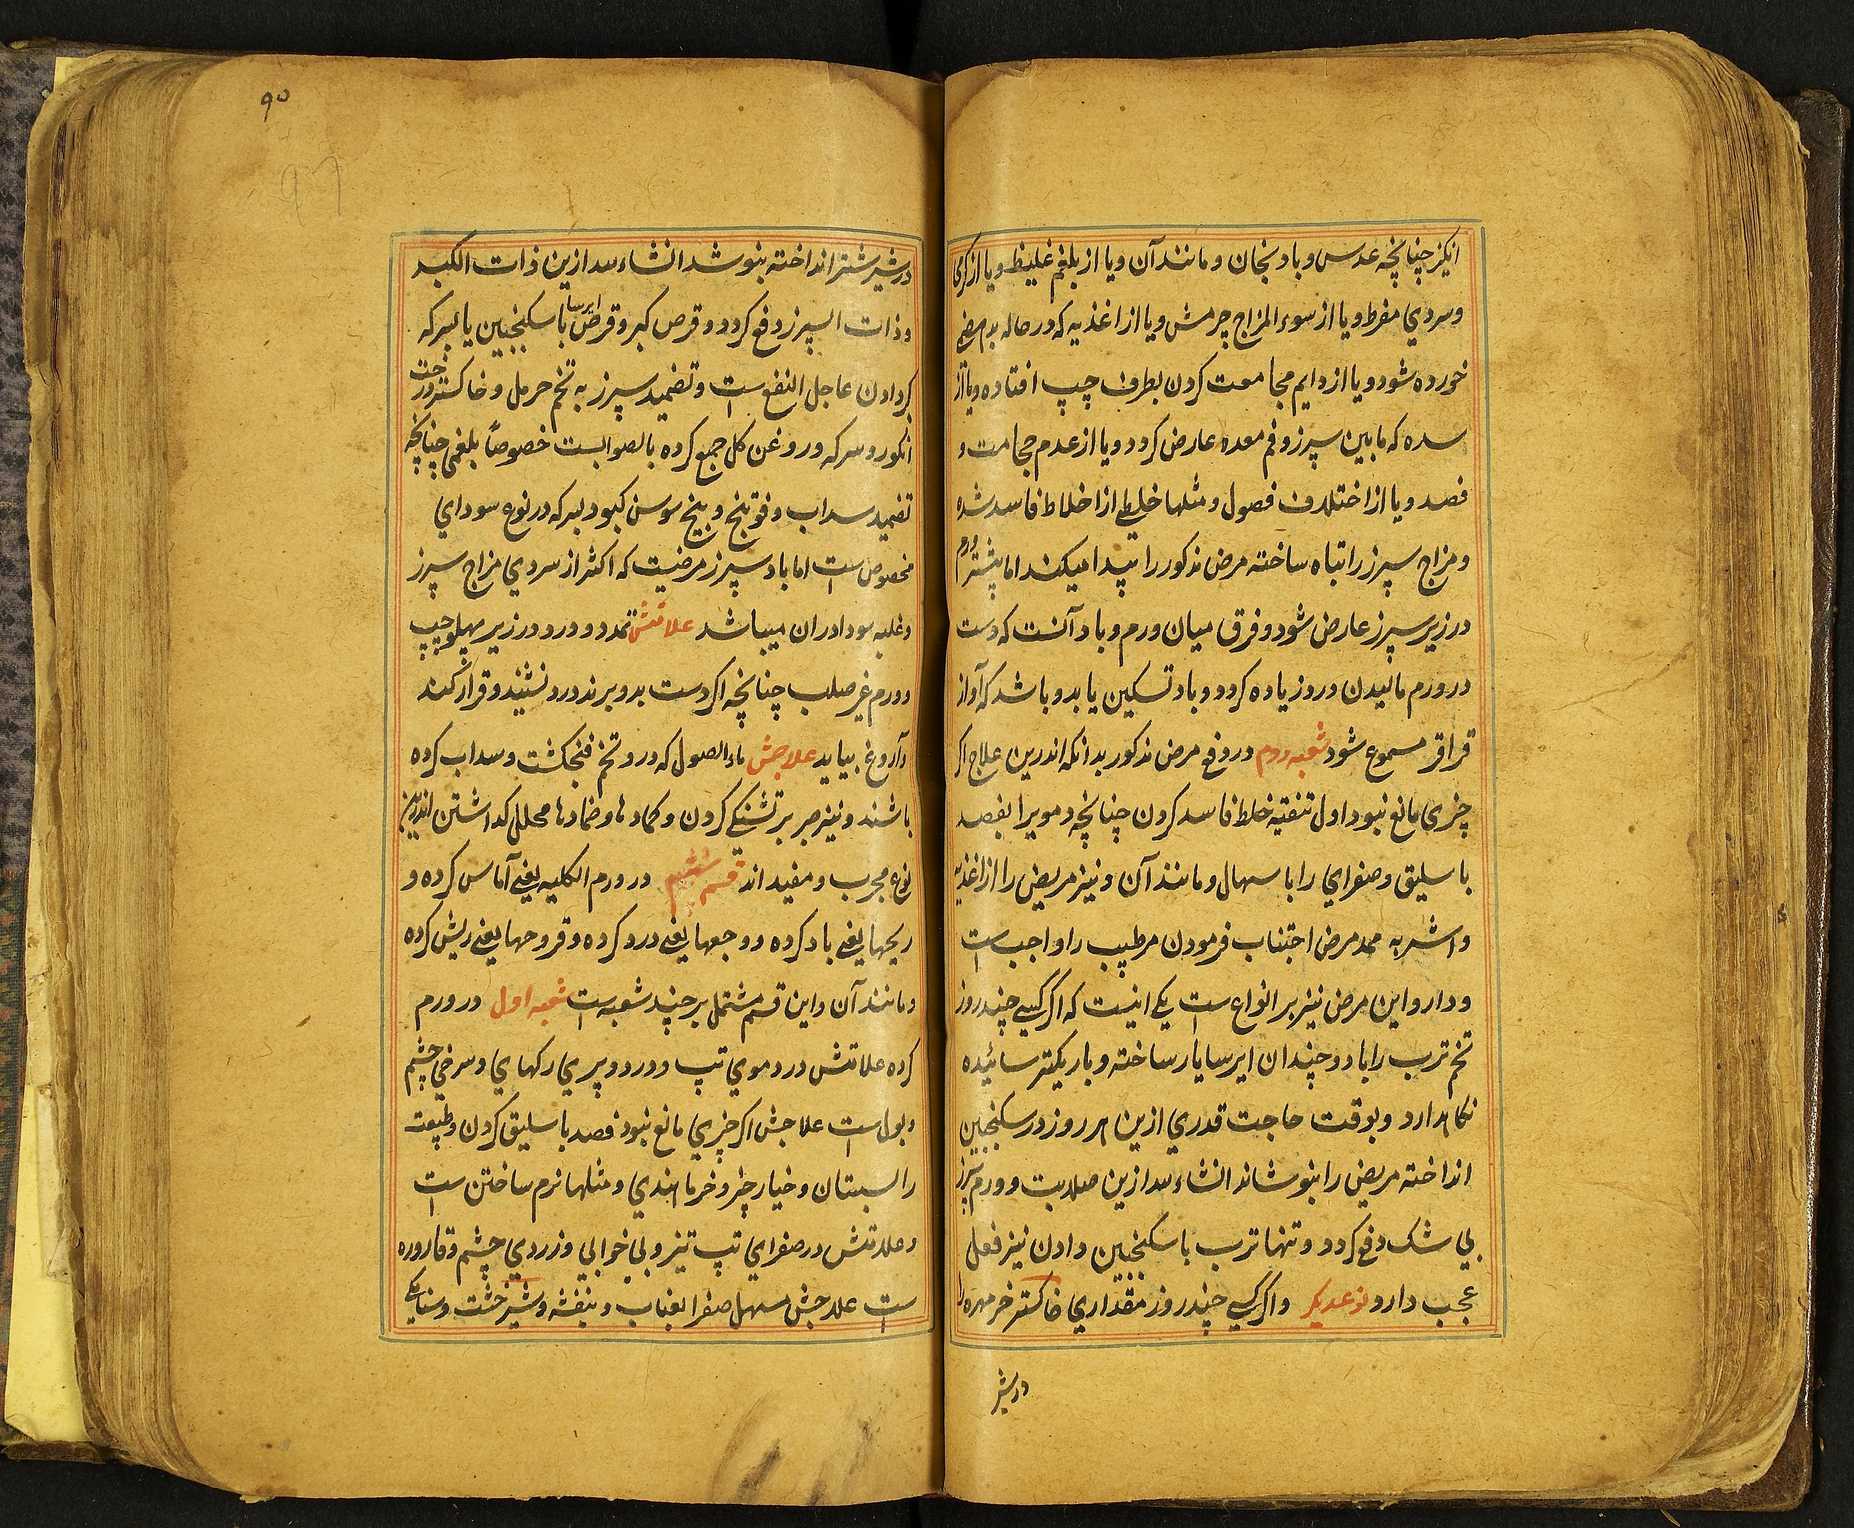 انکیز چنانچه عدس و بادنجان و مانند آن و یا از بلغم غلیظ و یا از کرما
و سردي مفرط و یا از سوء المزاج چرمش و یا از اغذیه که در حاله
خورده شود و یا از دایم مجامعت کردن بطرف چپ افتاده و یا از
سده که مابین سپرز و فم معده عارض کردد و یا از عدم حجامت و
فصد و یا از اختلاف فصول و مثلها خلطی از اخلاط فاسد شده
و مزاج سپرز را تباه ساخته مرض مذکور را پیدا میکند اما پیشتر ورم
در زیر سپرز عارض شود و فرق میان ورم و باد آنست که دست
در ورم مالیدن درو زیاده کردد و باد تسکین یابد و باشد که آواز
قراقر مسموع شود شعبه دوم در دفع مرض مذکور بدانکه اندرین علاج اکر
چزی مانع نبود اول تنقیه خلط فاسد کردن چنانچه دمویرا بفصد
باسلیق و صفراي را باسهال و مانند آن و نیز مریض را از اغذیه
و اشربه ممد مرض اجتناب فرمودن مر طبیب را واجب است
و دارو این مرض نیز بر انواع است یکے اینست که اکر کسے چند روز
تخم ترب را با دو چندان ایرسا یار ساخته و باریکتر سائیده
نکاهدارد و بوقت حاجت قدري ازین هر روز در سکنجبین
انداخته مریض را بنوشاند انشاءلله ازین صلابت و ورم سپرز
بي شک دفع کردد و تنها ترب با سکنجبین دادن نیز فعل
عجب دارد نوعدیکر و اکر کسے چند روز مقداري خاکستر خرمهره را
در شیر
۹۰
در شیر شتر انداخته بنوشد انشاءلله ازین ذات الکبد
و ذات السپرز دفع کردد و قرص کبر و قرص ایرسا با سکنجبین یا بسرکه
کر دادن عاجل النفع است و تضمید سپرز به تخم حرمل و خاکستر درخت
انکور و سرکه و روغن کل جمع کرده بالصوابست خصوصاً بلغمی چنانچه
تضمید سداب و فوتنج و بیخ سوسن کبود بسرکه در نوع سوداي
مخصوص است اما باد سپرز مرضیست که اکثر از سردي مزاج سپرز
و غلبه سودا دران میباشد علامتش تمدد و درد در زیر پهلو چپ
و ورم غیر صلب چنانچه اکر دست بدو برند درو نشیند و قراقر کند
و آروغ بیاید علاجش ماءالاصول که درو تخم فنجنکشت و سداب کرده
باشند و نیز صبر بر تشنکے کردن و کمادها و ضمادها محلل کذاشتن اندرین
نوع مجرب و مفید اند قسم ششم در ورم الکلیه یعنے آماس کرده و
ریحها یعنے باد کرده و وجعها یعنے درد کرده و قروحها یعنے ریش کرده
و مانند آن و این قسم مشتمل بر چند شعبه است شعبه اول در ورم
کرده علامتش در دموي تپ و درد و پري رکهاي و سرخي چشم
و بول است علاجش اکر چزي مانع نبود فصد باسلیق کردن و طبیعت
را بسپستان و خیار چنبر و خرماهندي و مثلها نرم ساختن است
و علامتش در صفراي تپ تیز و بي خوابي و زردي چشم و قاروره
است علاجش مسهل صفرا بعناب و بنفشه و شیر خشت و سناءمکے